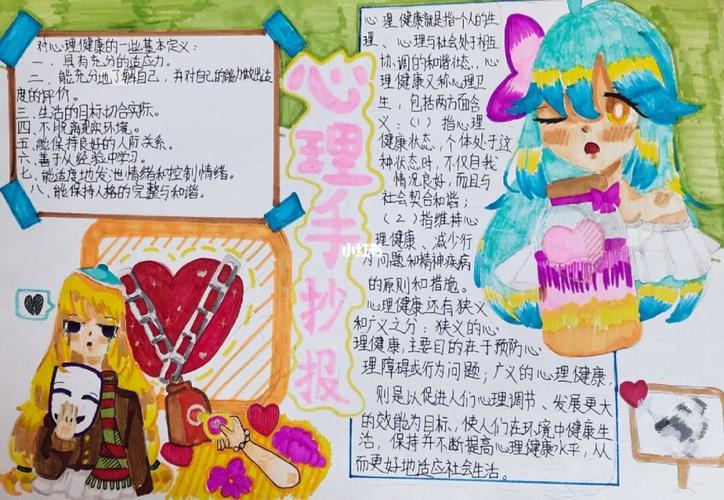 对心理健康的一些基本定义：
一、具有充分的适应力。
二、能充分地了解自己，并对自己的能力做出适
度的评价。
三、生活的目标切合实际。
四、不脱离现实环境。
五、能保持良好的人际关系。
六、善于从经验中学习。
七、能适度地发泄情绪和控制情绪。
八、能保持人格的完整与和谐。
心理手抄报
小红书
心理健康就是指个人的生
理、心理与社会处于相互
协调的和谐状态，心
理健康又称心理卫
生，包括两方面含
义：（1）指心理
健康状态，个体处于这
种状态时，不仅自我
情况良好，而且与
社会契合和谐；
（2）指维持心
理健康、减少行
为问题和精神疾病
的原则和措施。
心理健康还有狭义
和广义之分：狭义的心
理健康，主要目的在于预防心
理障碍或行为问题；广义的心理健康，
则是以促进人们心理调节、发展更大
的效能为目标，使人们在环境中健康生
活，保持并不断提高心理健康水平，从
而更好地适应社会生活。